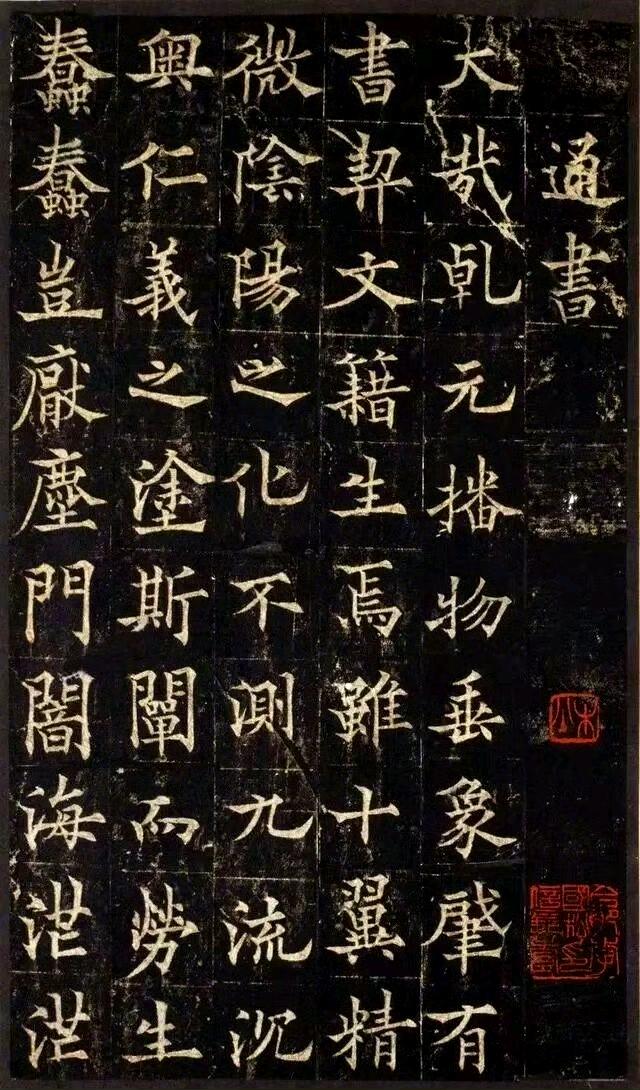 通書
大哉乹元播物垂象肇有
書契文籍生焉雖十翼精
微陰陽之化不測九流沉
奧仁義之塗斯闡而勞生
蠢蠢豈厭塵門闇海茫茫